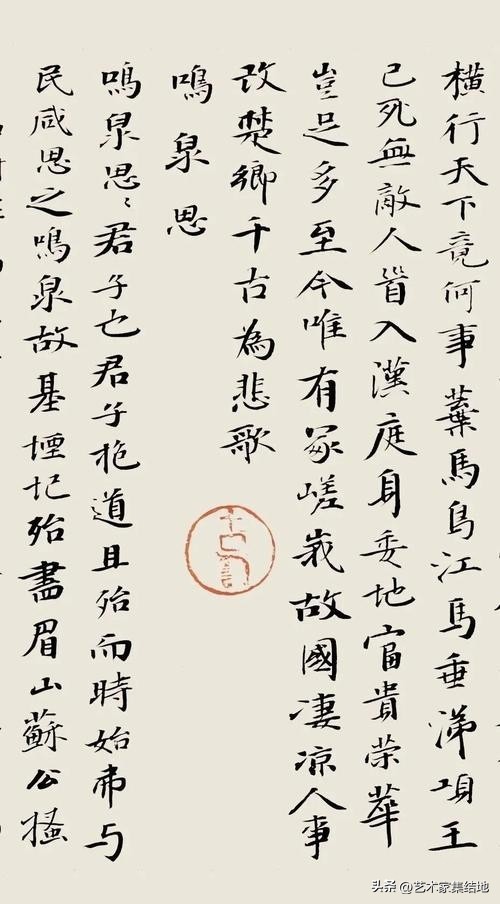 橫行天下竟何事棄馬烏江馬垂涕項王
已死無敵人首入漢庭身委地富貴榮華
豈足多至今唯有冢嵯峩故國凄凉人事
改楚鄉千古為悲歌
鳴泉思
鳴泉思〻君子也君子抱道且殆而時始弗与
民咸思之鳴泉故基堙圮殆盡眉山蘇公搔
头条 @艺术家集结地